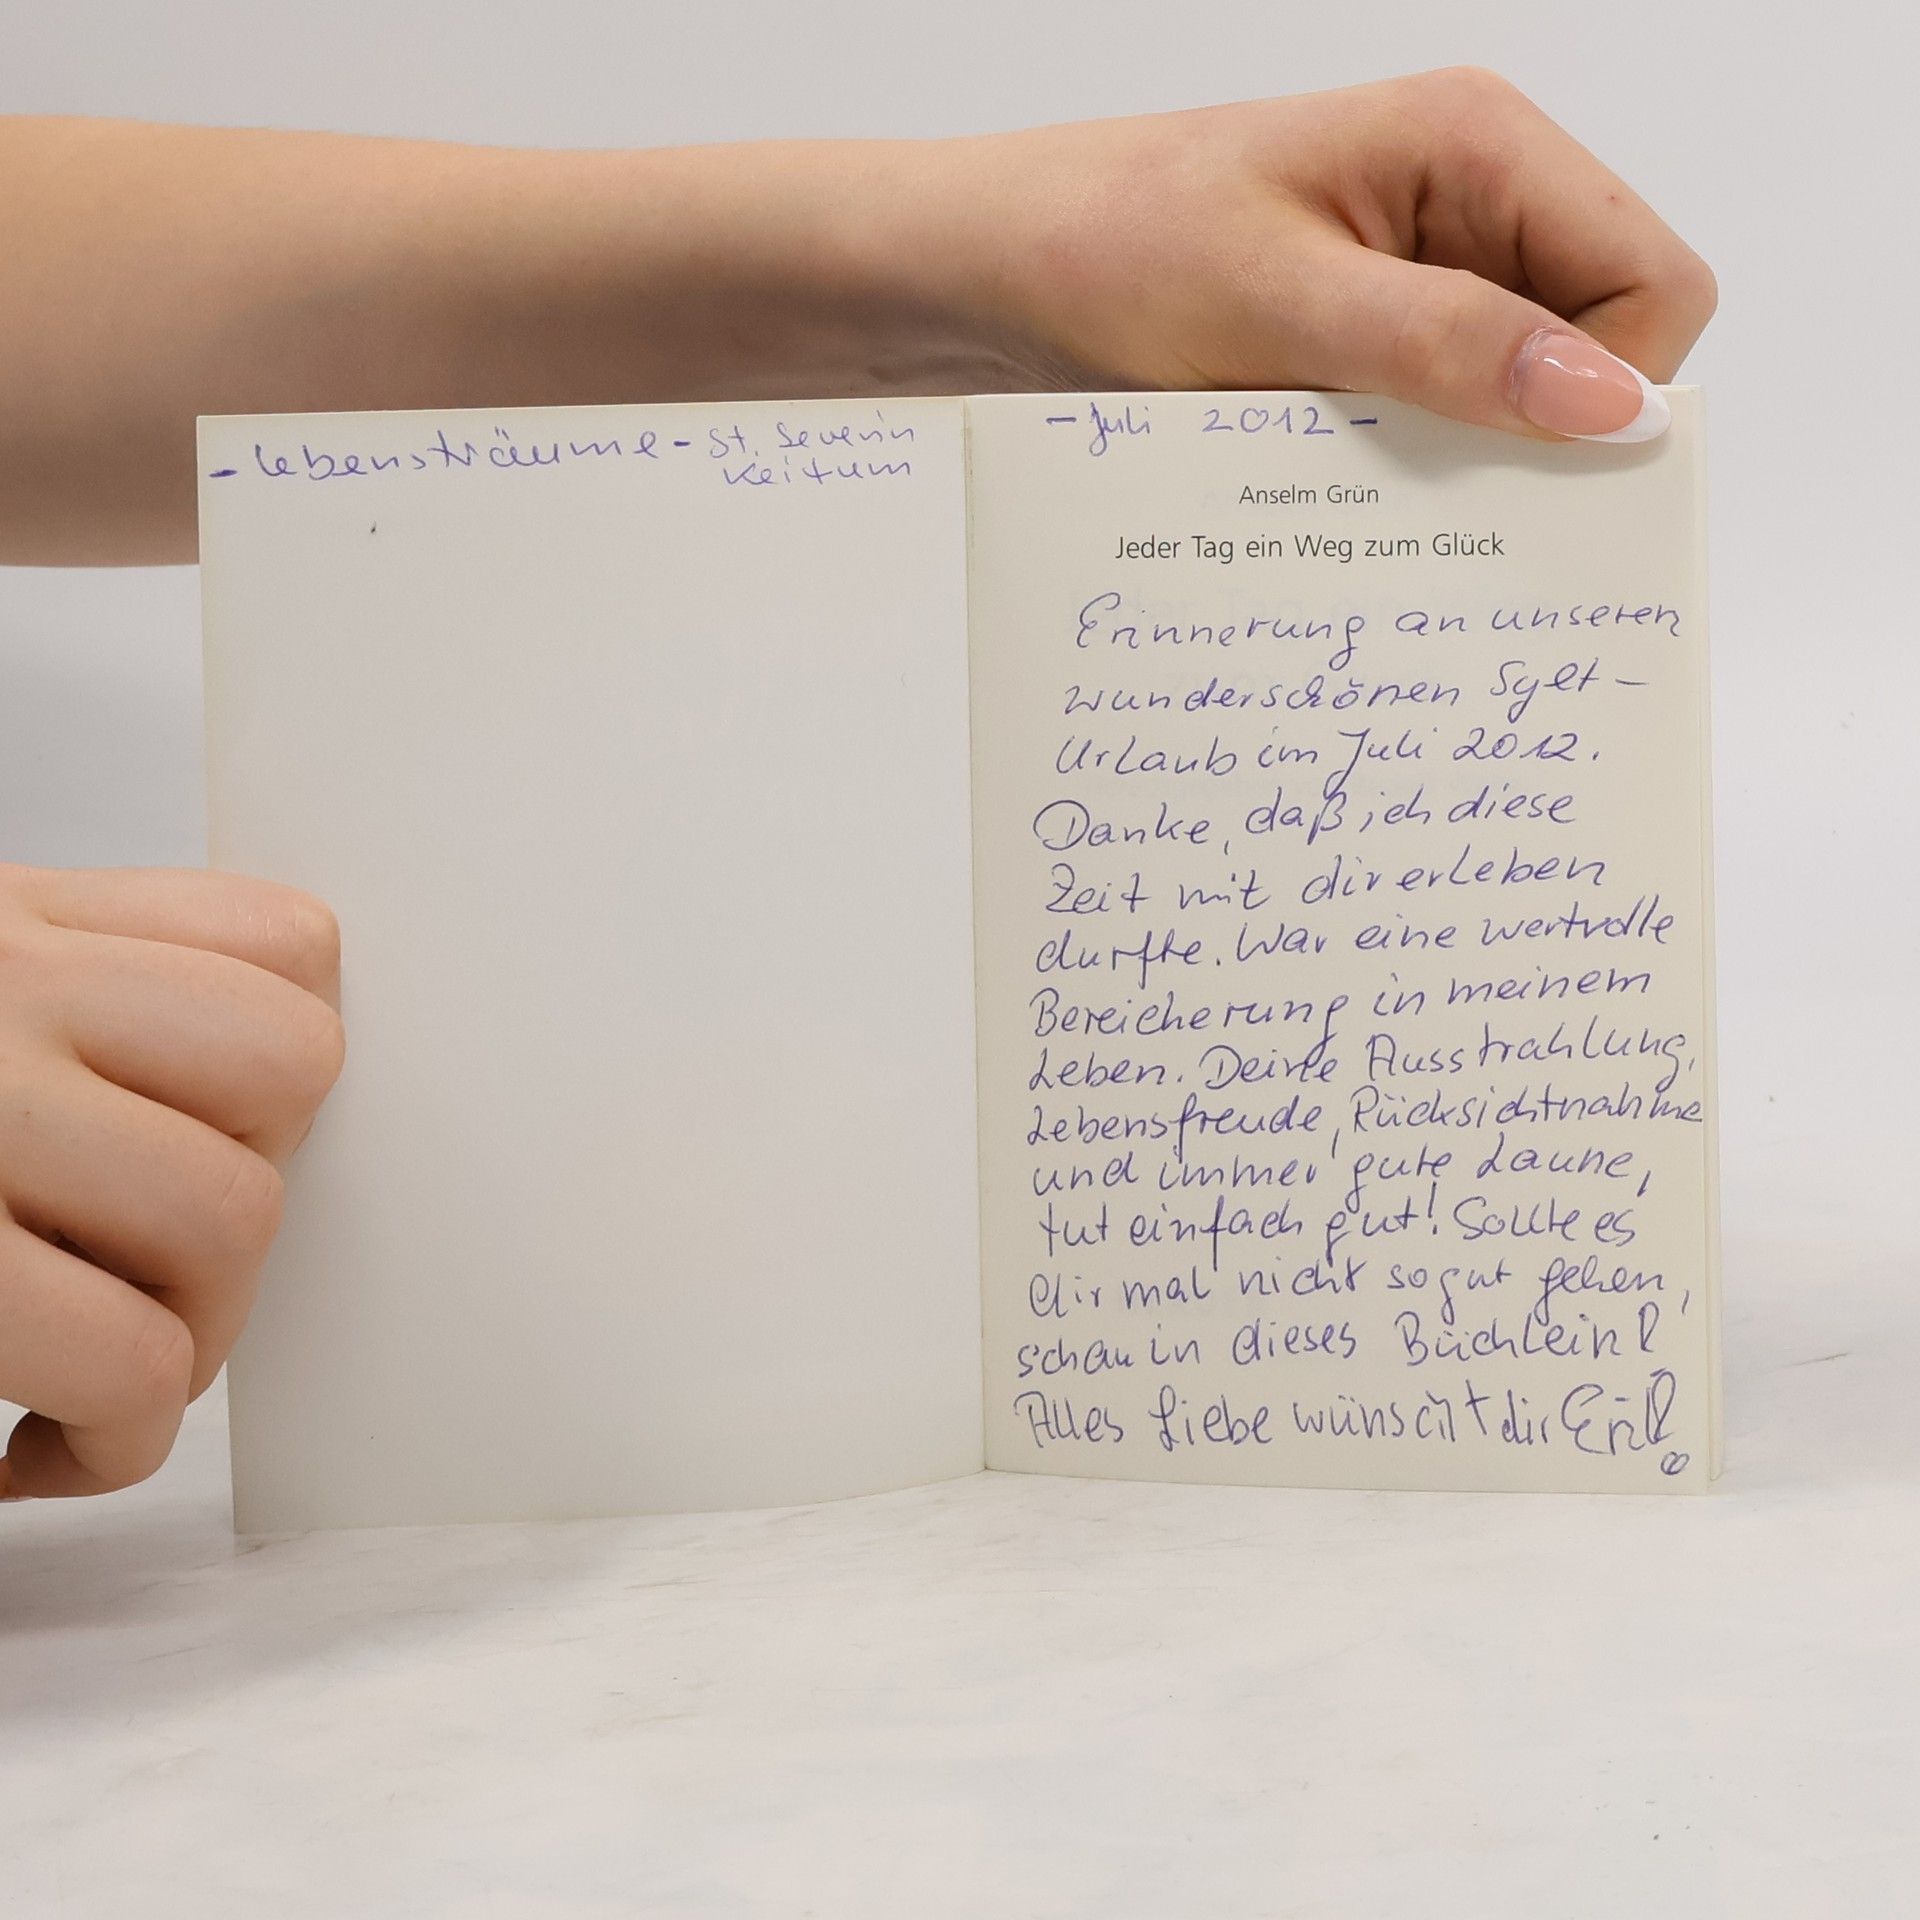 - Lebensträume - St. Severin
Keitum
- Juli 2012 -
Anselm Grün
Jeder Tag ein Weg zum Glück
Erinnerung an unseren
wunderschönen Sylt-
Urlaub im Juli 2012.
Danke, daß ich diese
Zeit mit dir erleben
durfte. War eine wertvolle
Bereicherung in meinem
Leben. Deine Ausstrahlung,
Lebensfreude, Rücksichtnahme
und immer gute Laune,
tut einfach gut! Sollte es
dir mal nicht so gut gehen,
schau in dieses Büchlein!
Alles Liebe wünscht dir